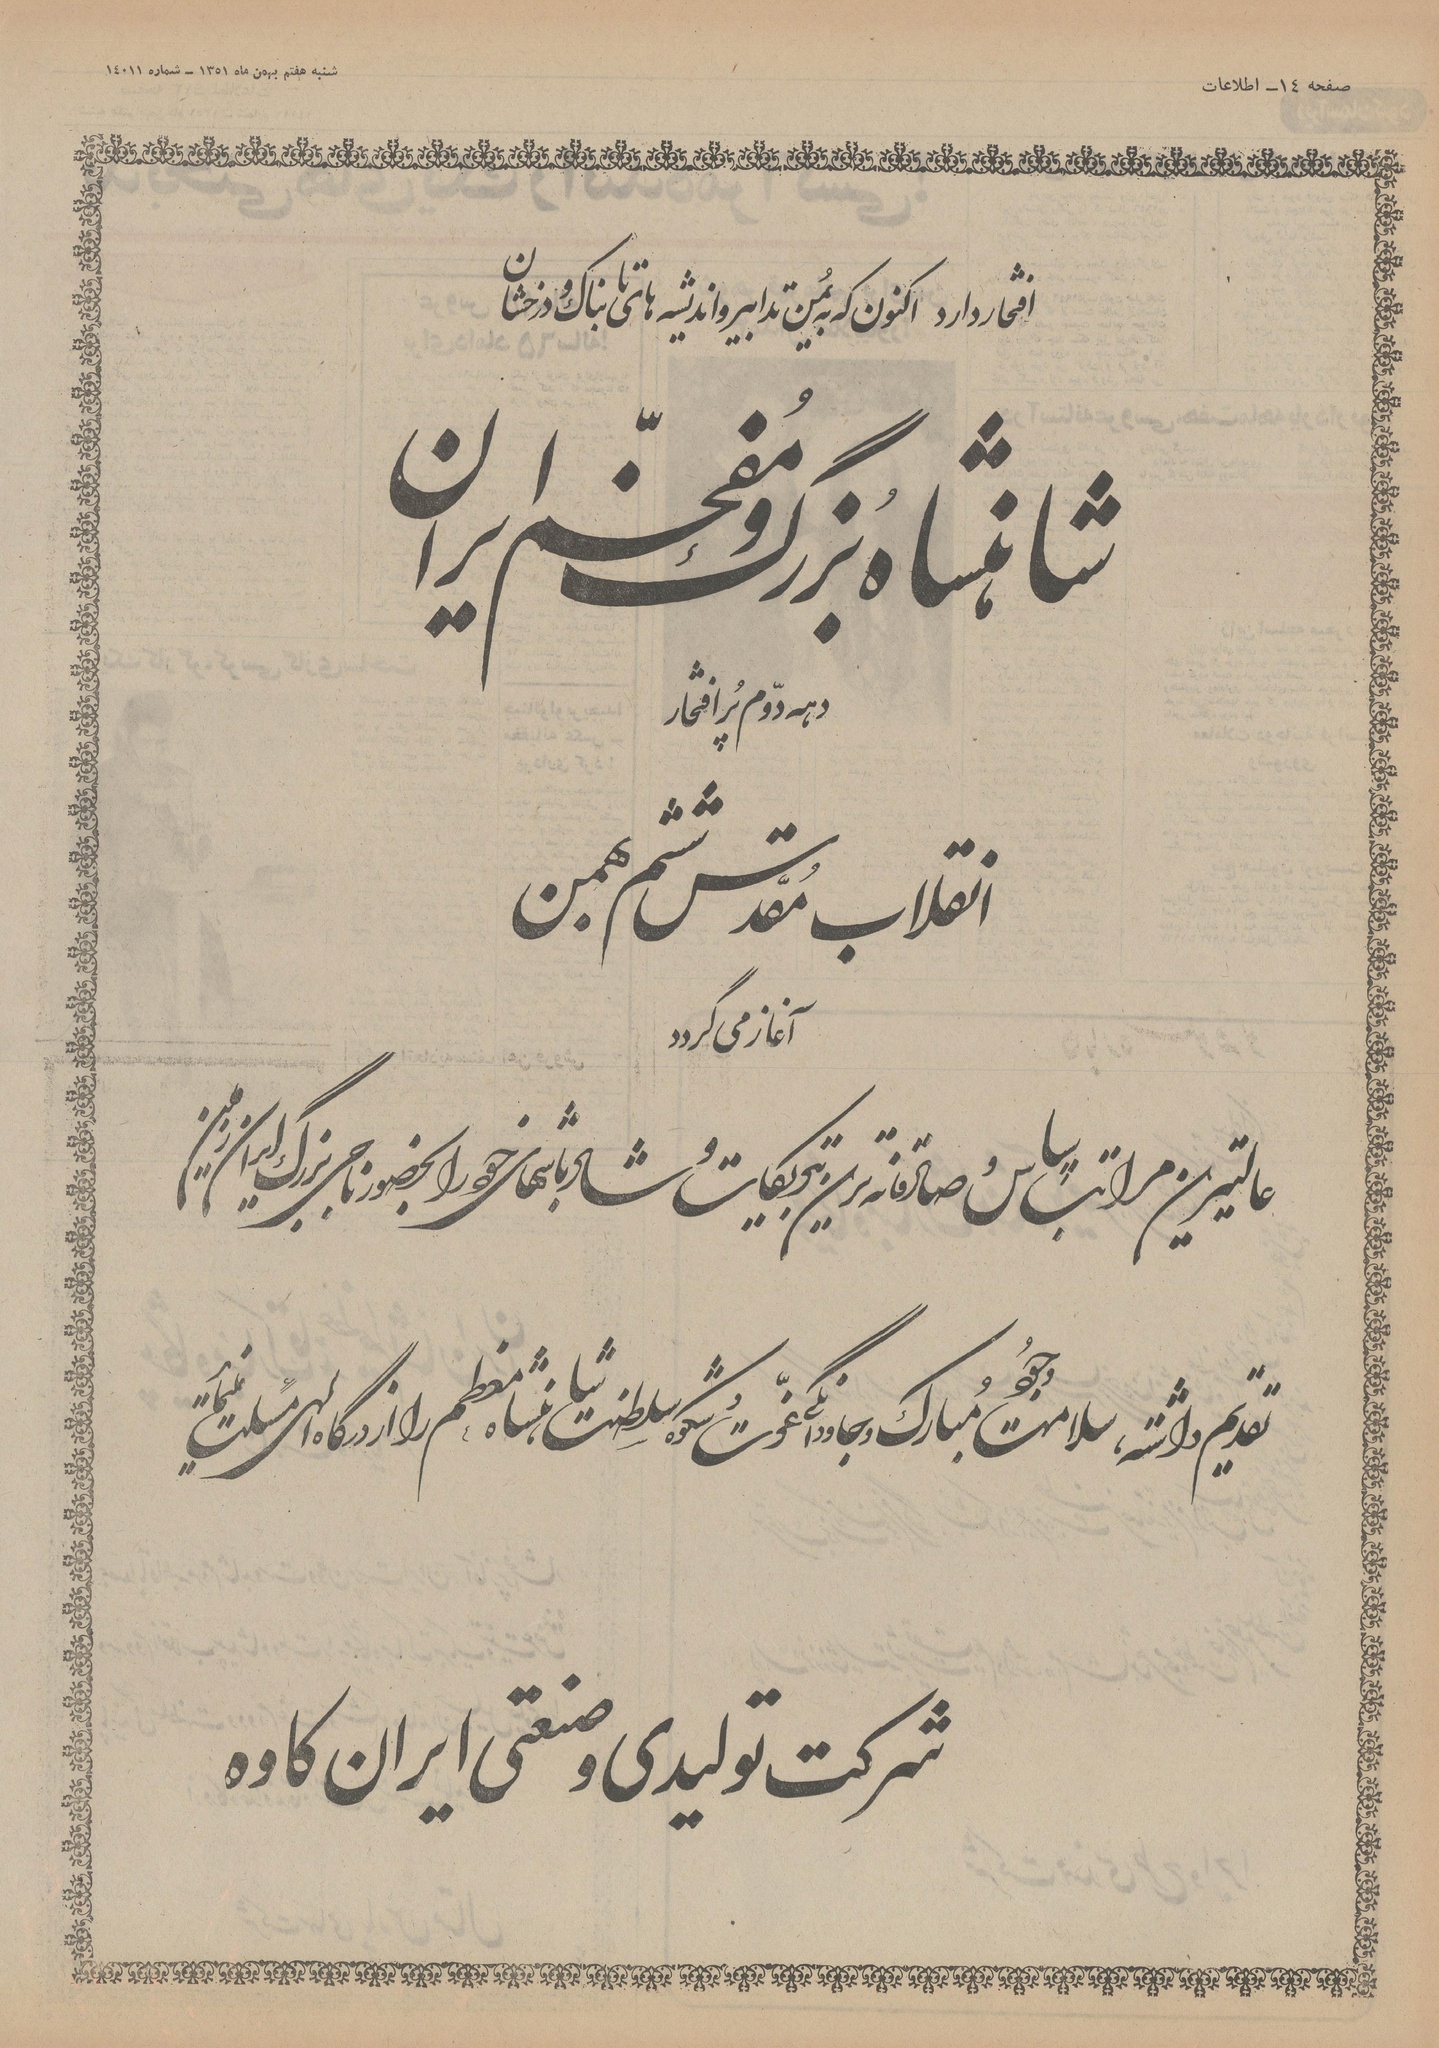 صفحه ۱۴ـ اطلاعات
شنبه هفتم بهمن ماه ۱۳۵۱ ـ شماره ۱۴۰۱۱
افتخار دارد اکنون که به یُمن تدابیر و اندیشه های تابناک و درخشان
شاهنشاه بزرگ و مُفخّم ایران
دهه دوّم پُر افتخار
انقلاب مُقدّس ششم بهمن
آغاز می گردد
عالیترین مراتب سپاس و صادقانه ترین تبریکات و شادباشهای خود را بحضور ناجی بزرگ ایران زمین
تقدیم داشته، سلامت وجود مُبارک و جاودانگی عزّت و شکوه سلطنت شاهنشاه معظم را از درگاه الهی مسئلت مینمائیم
شرکت تولیدی و صنعتی ایران کاوه